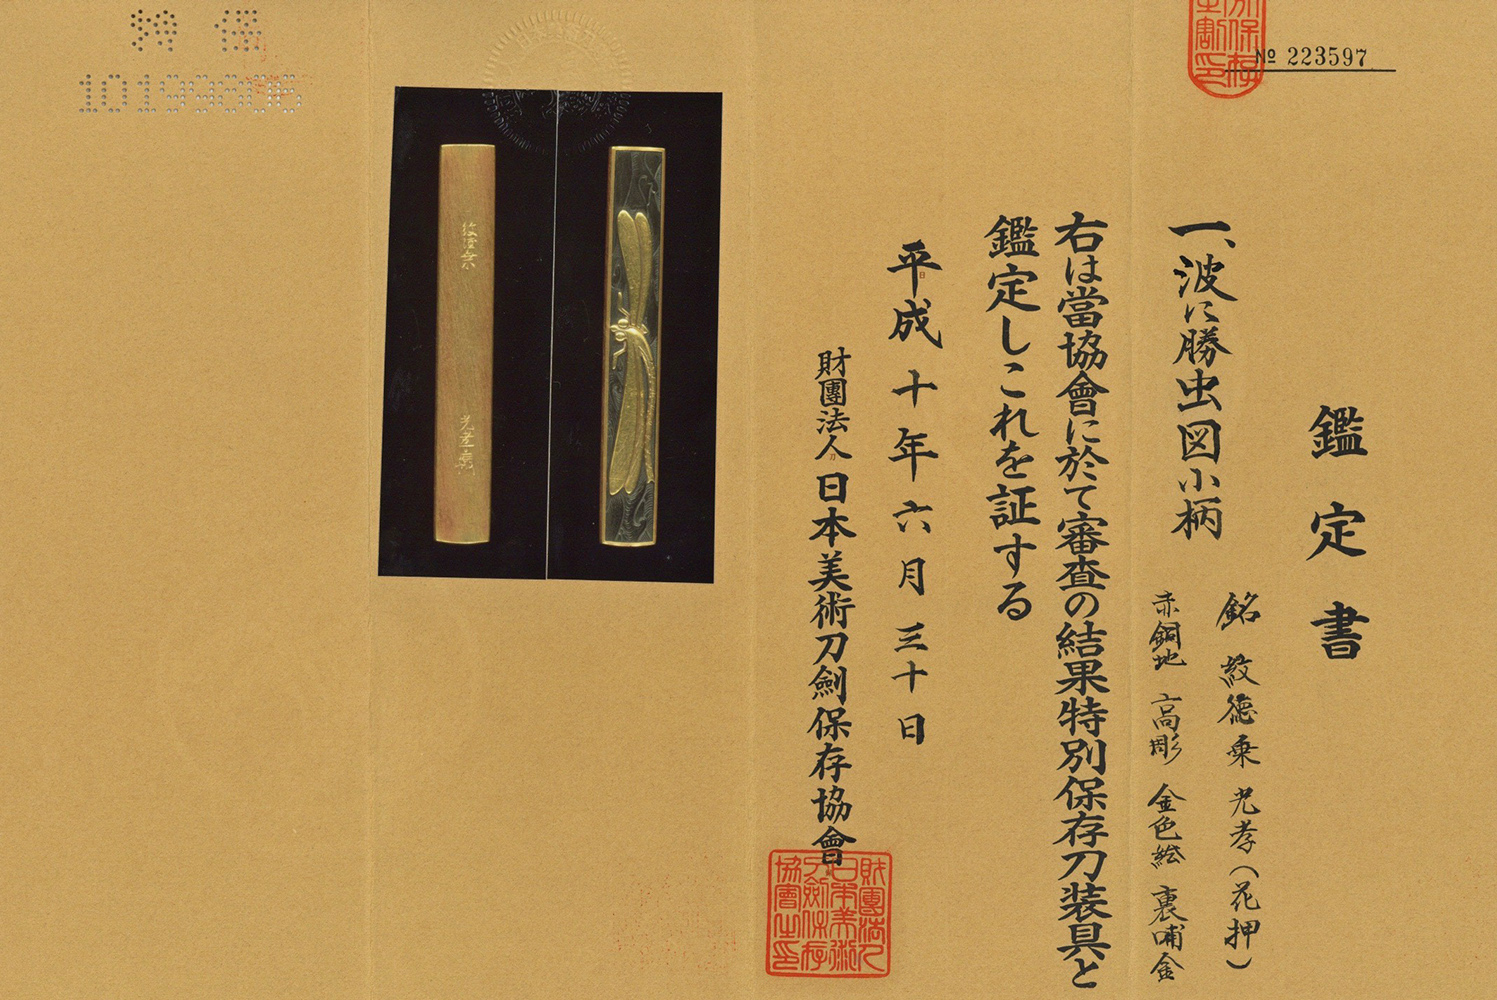 No 223597
鑑定書
一、波に勝虫図小柄
銘 紋徳乗 光孝(花押)
赤銅地 高彫 金色絵 裏哺金
右は當協會に於て審査の結果特別保存刀装具と
鑑定しこれを証する
平成十年六月三十日
財團法人 日本美術刀劍保存協會
財團法人
日本美術
刀劍保存
協會之印
紋徳乗
光孝
特保
10199606